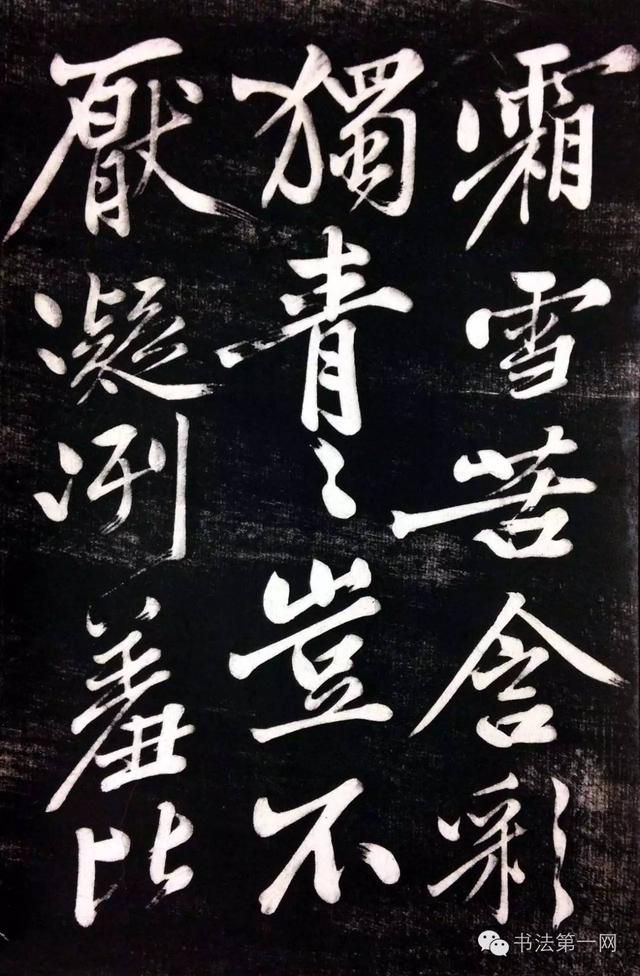 霜雪苦含彩
獨青〻豈不
厭凝冽羞比
书法第一网